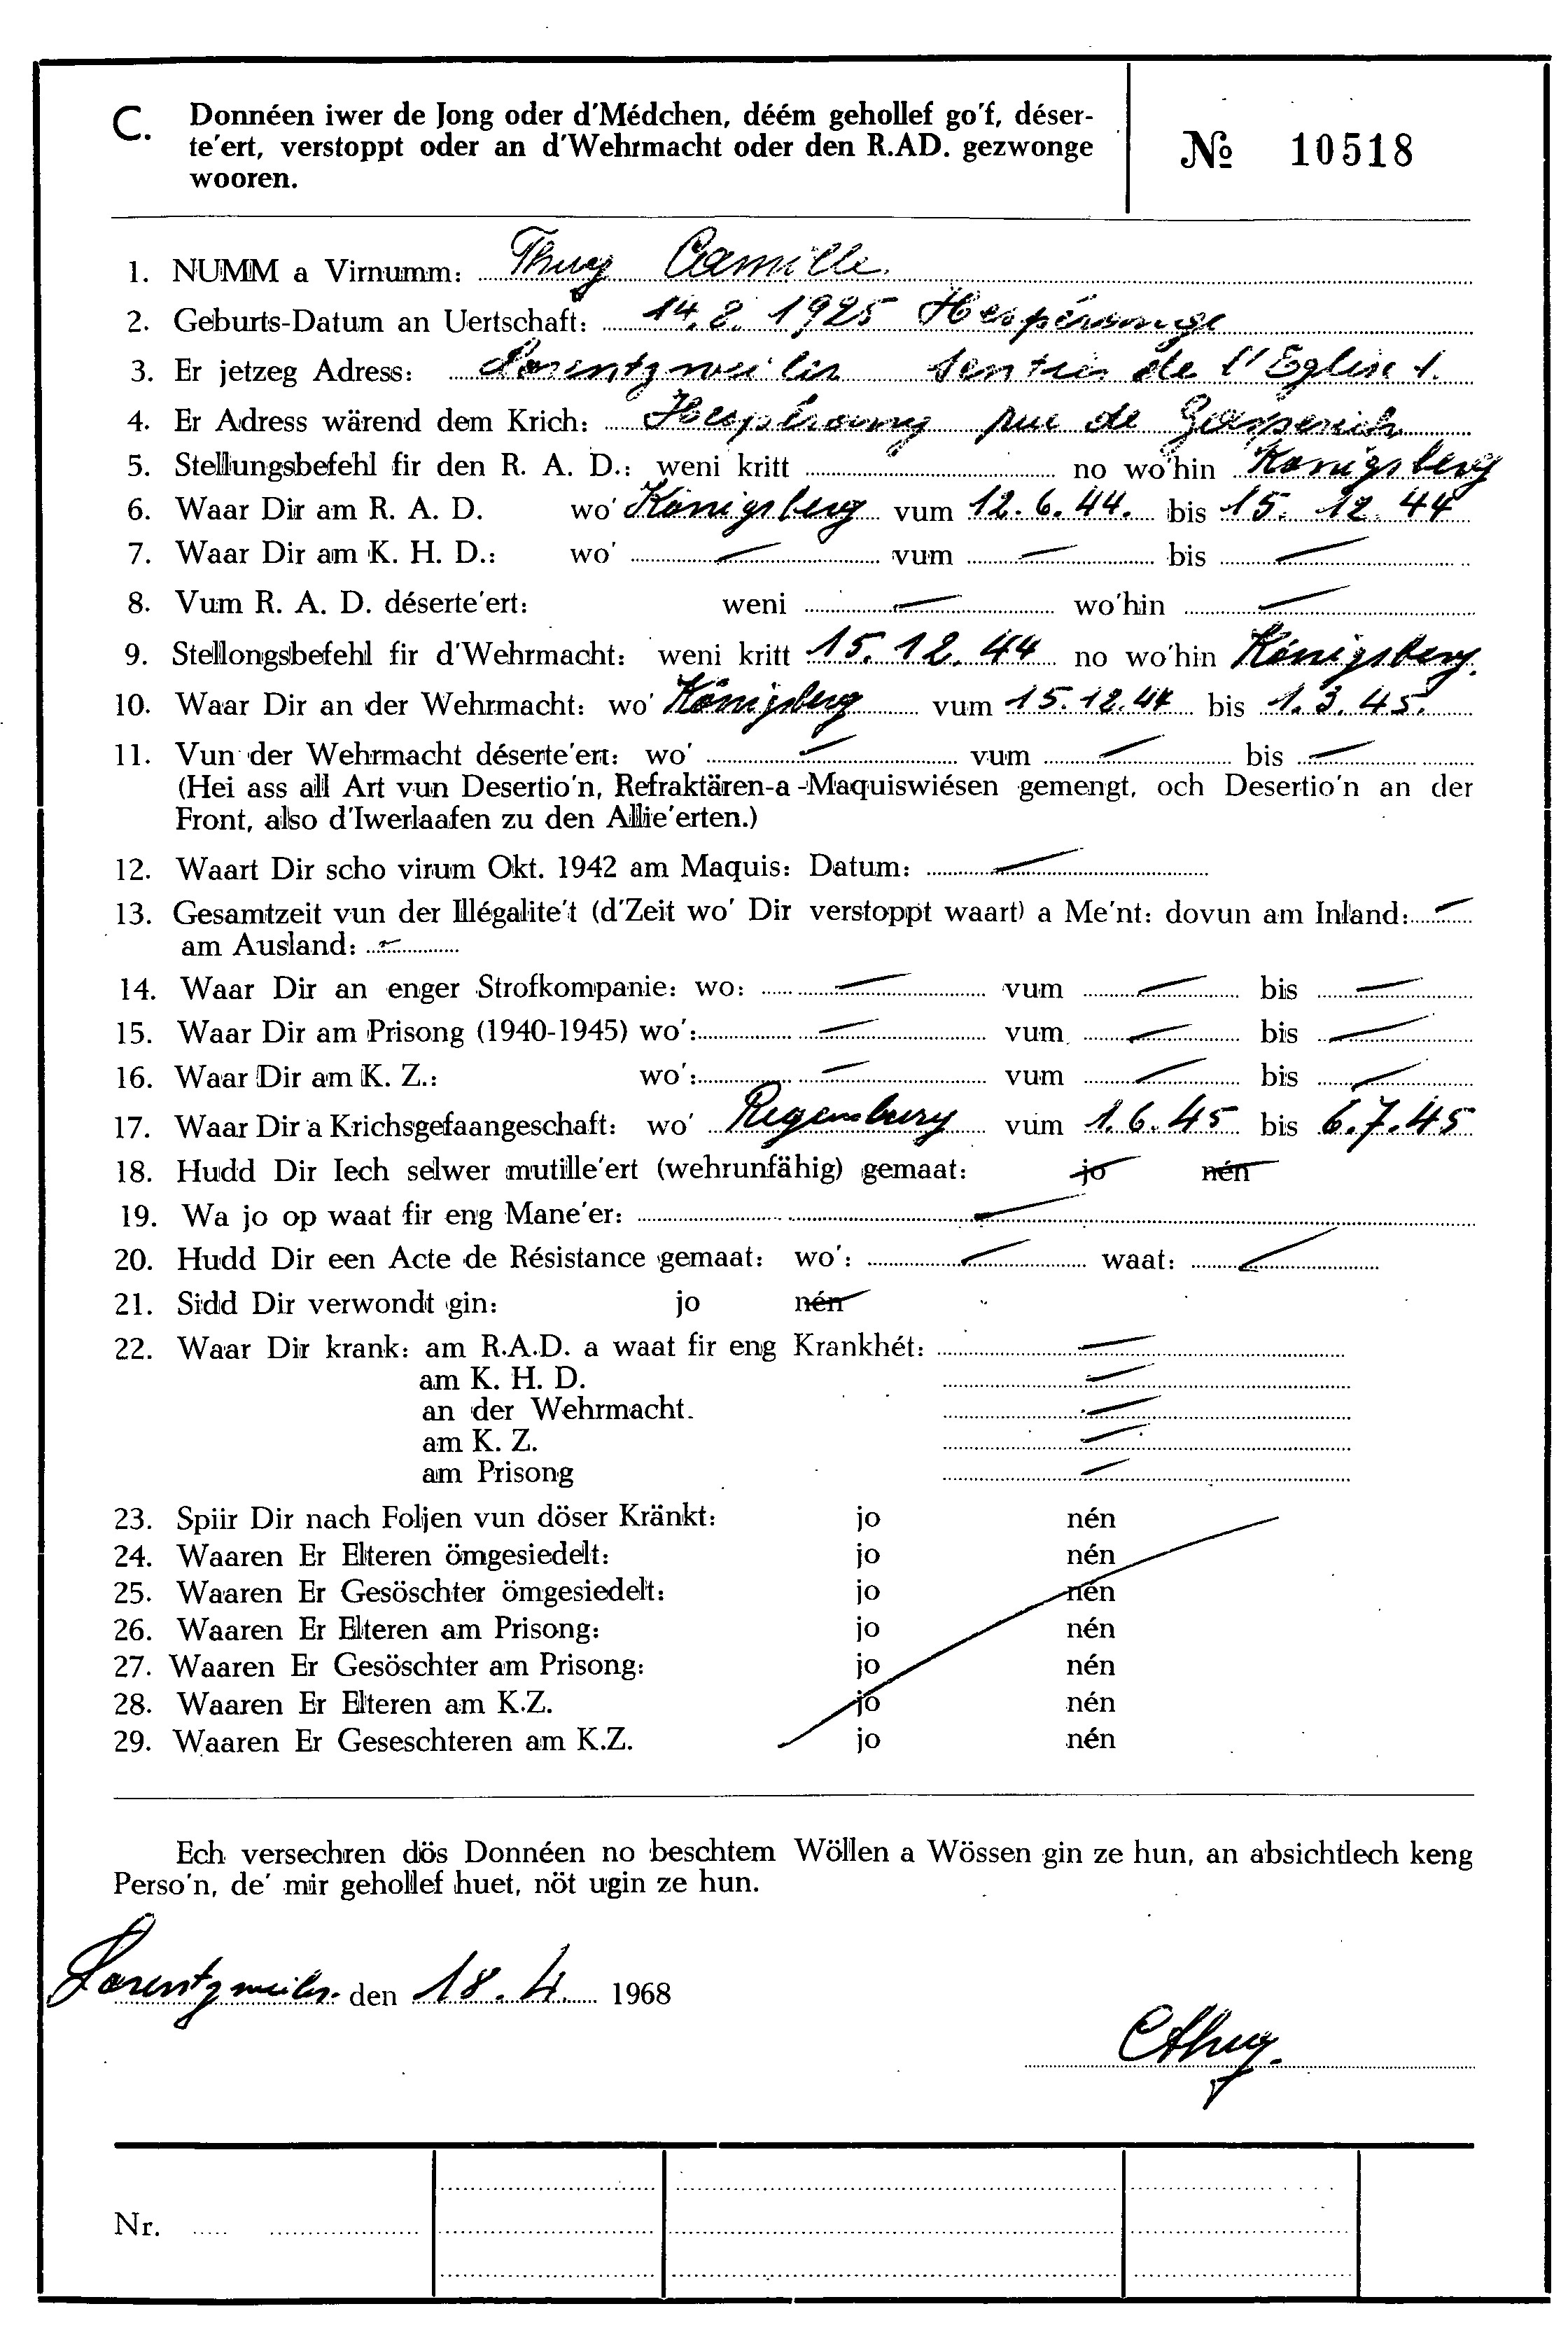 C. Donnéen iwer de Jong oder d'Médchen, déém gehollef go'f, déser-
te'ert, verstoppt oder an d'Wehrmacht oder den R.AD. gezwonge
wooren.
№ 10518
1. NUMM a Virnumm: Thug Camille
2. Geburts-Datum an Uertschaft: 14.8.1925 Hespérange
3. Er jetzeg Adress: Lorentzweiler Sentier de l'Eglise 1.
4. Er Adress wärend dem Krich: Hespérang rue de Gasperich
5. Stellungsbefehl fir den R. A. D.: weni kritt no wo'hin Königsberg
6. Waar Dir am R. A. D. wo' Königsberg vum 12.6.44. bis 15. 12.44
7. Waar Dir am K. H. D.: wo' — vum — bis —
8. Vum R. A. D. déserte'ert: weni — wo'hin —
9. Stellongsbefehl fir d'Wehrmacht: weni kritt 15.12.44 no wo'hin Königsberg.
10. Waar Dir an der Wehrmacht: wo' Königsberg vum 15.12.44 bis 1.3.45.
11. Vun der Wehrmacht déserte'ert: wo' — vum — bis —
(Hei ass all Art vun Desertio'n, Refraktären-a-Maquiswiésen gemengt, och Desertio'n an der
Front, also d'Iwerlaafen zu den Allie'erten.)
12. Waart Dir scho virum Okt. 1942 am Maquis: Datum: —
13. Gesamtzeit vun der Illégalite't (d'Zeit wo' Dir verstoppt waart) a Me'nt: dovun am Inland: —
am Ausland: —
14. Waar Dir an enger Strofkompanie: wo: — vum — bis —
15. Waar Dir am Prisong (1940-1945) wo': — vum — bis —
16. Waar Dir am K. Z.: wo': — vum — bis —
17. Waar Dir a Krichsgefaangeschaft: wo' Regensburg vum 1.6.45 bis 6.7.45
18. Hudd Dir Iech selwer mutille'ert (wehrunfähig) gemaat: jo nén
19. Wa jo op waat fir eng Mane'er: —
20. Hudd Dir een Acte de Résistance gemaat: wo': — waat: —
21. Sidd Dir verwondt gin: jo nén
22. Waar Dir krank: am R.A.D. a waat fir eng Krankhét: —
am K. H. D. —
an der Wehrmacht. —
am K. Z. —
am Prisong —
23. Spiir Dir nach Foljen vun döser Kränkt: jo nén
24. Waaren Er Elteren ömgesiedelt: jo nén
25. Waaren Er Gesöschter ömgesiedelt: jo nén
26. Waaren Er Elteren am Prisong: jo nén
27. Waaren Er Gesöschter am Prisong: jo nén
28. Waaren Er Elteren am K.Z. jo nén
29. Waaren Er Geseschteren am K.Z. jo nén
Ech versechren dös Donnéen no beschtem Wöllen a Wössen gin ze hun, an absichtlech keng
Perso'n, de' mir gehollef huet, nöt ugin ze hun.
Lorentzweiler. den 18.4. 1968
CThug.
Nr.